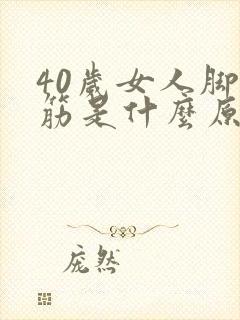 40歲女人脚
筋是什麼原
庞然